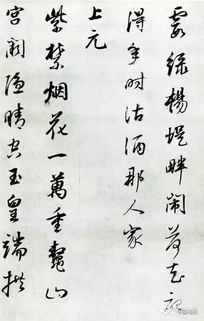 霞緑楊堤畔鬧荷花記
得年時沽酒那人家
上元
紫禁烟花一萬重鰲山
宮闕隐晴空玉皇端拱